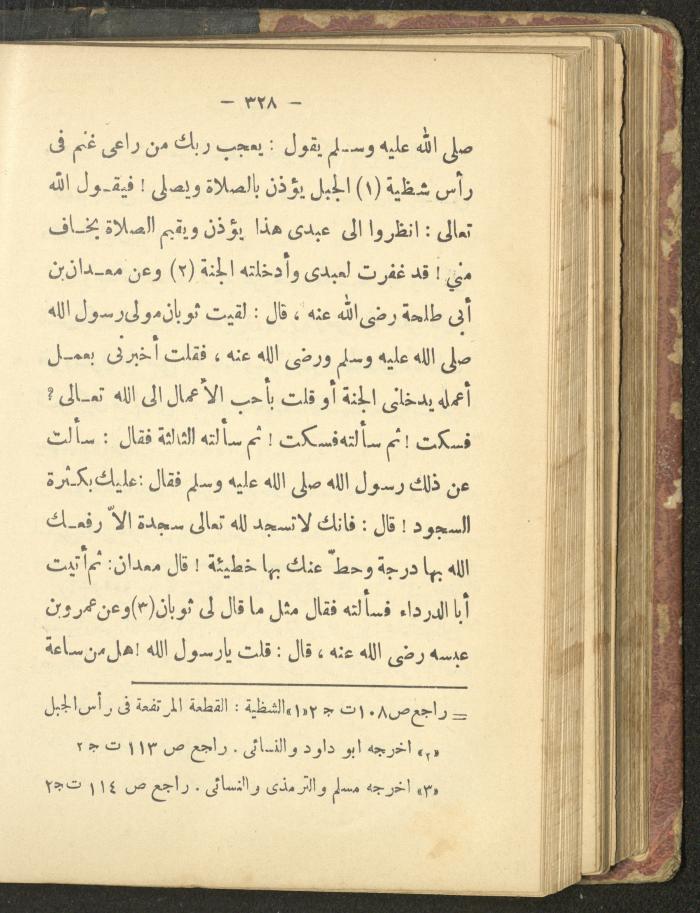 – ٣٢٨ –
صلى الله عليه وسلم يقول : يعجب ربك من راعى غنم فى
رأس شظية (١) الجبل يؤذن بالصلاة ويصلى ! فيقول الله
تعالى : انظروا الى عبدى هذا يؤذن ويقيم الصلاة يخاف
مني ! قد غفرت لعبدى وأدخلته الجنة (٢) وعن معدان بن
أبى طلحة رضى الله عنه ، قال : لقيت ثوبان مولى رسول الله
صلى الله عليه وسلم ورضى الله عنه ، فقلت أخبرنى بعمل
أعمله يدخلنى الجنة أو قلت بأحب الأعمال الى الله تعالى ؟
فسكت ! ثم سألته فسكت ! ثم سألته الثالثة فقال : سألت
عن ذلك رسول الله صلى الله عليه وسلم فقال : عليك بكثرة
السجود ! قال : فانك لاتسجد لله تعالى سجدة الاّ رفعك
الله بها درجة وحطّ عنك بها خطيئة ! قال معدان : ثم أتيت
أبا الدرداء فسألته فقال مثل ما قال لى ثوبان (٣) وعن عمرو بن
عبسه رضى الله عنه ، قال : قلت يارسول الله ! هل من ساعة
= راجع ص ١٠٨ ت ج ٢ «١» الشظية : القطعة المرتفعة فى رأس الجبل
«٢» اخرجه ابو داود والنسائى . راجع ص ١١٣ ت ج ٢
«٣» اخرجه مسلم والترمذى والنسائى . راجع ص ١١٤ ت ج ٢